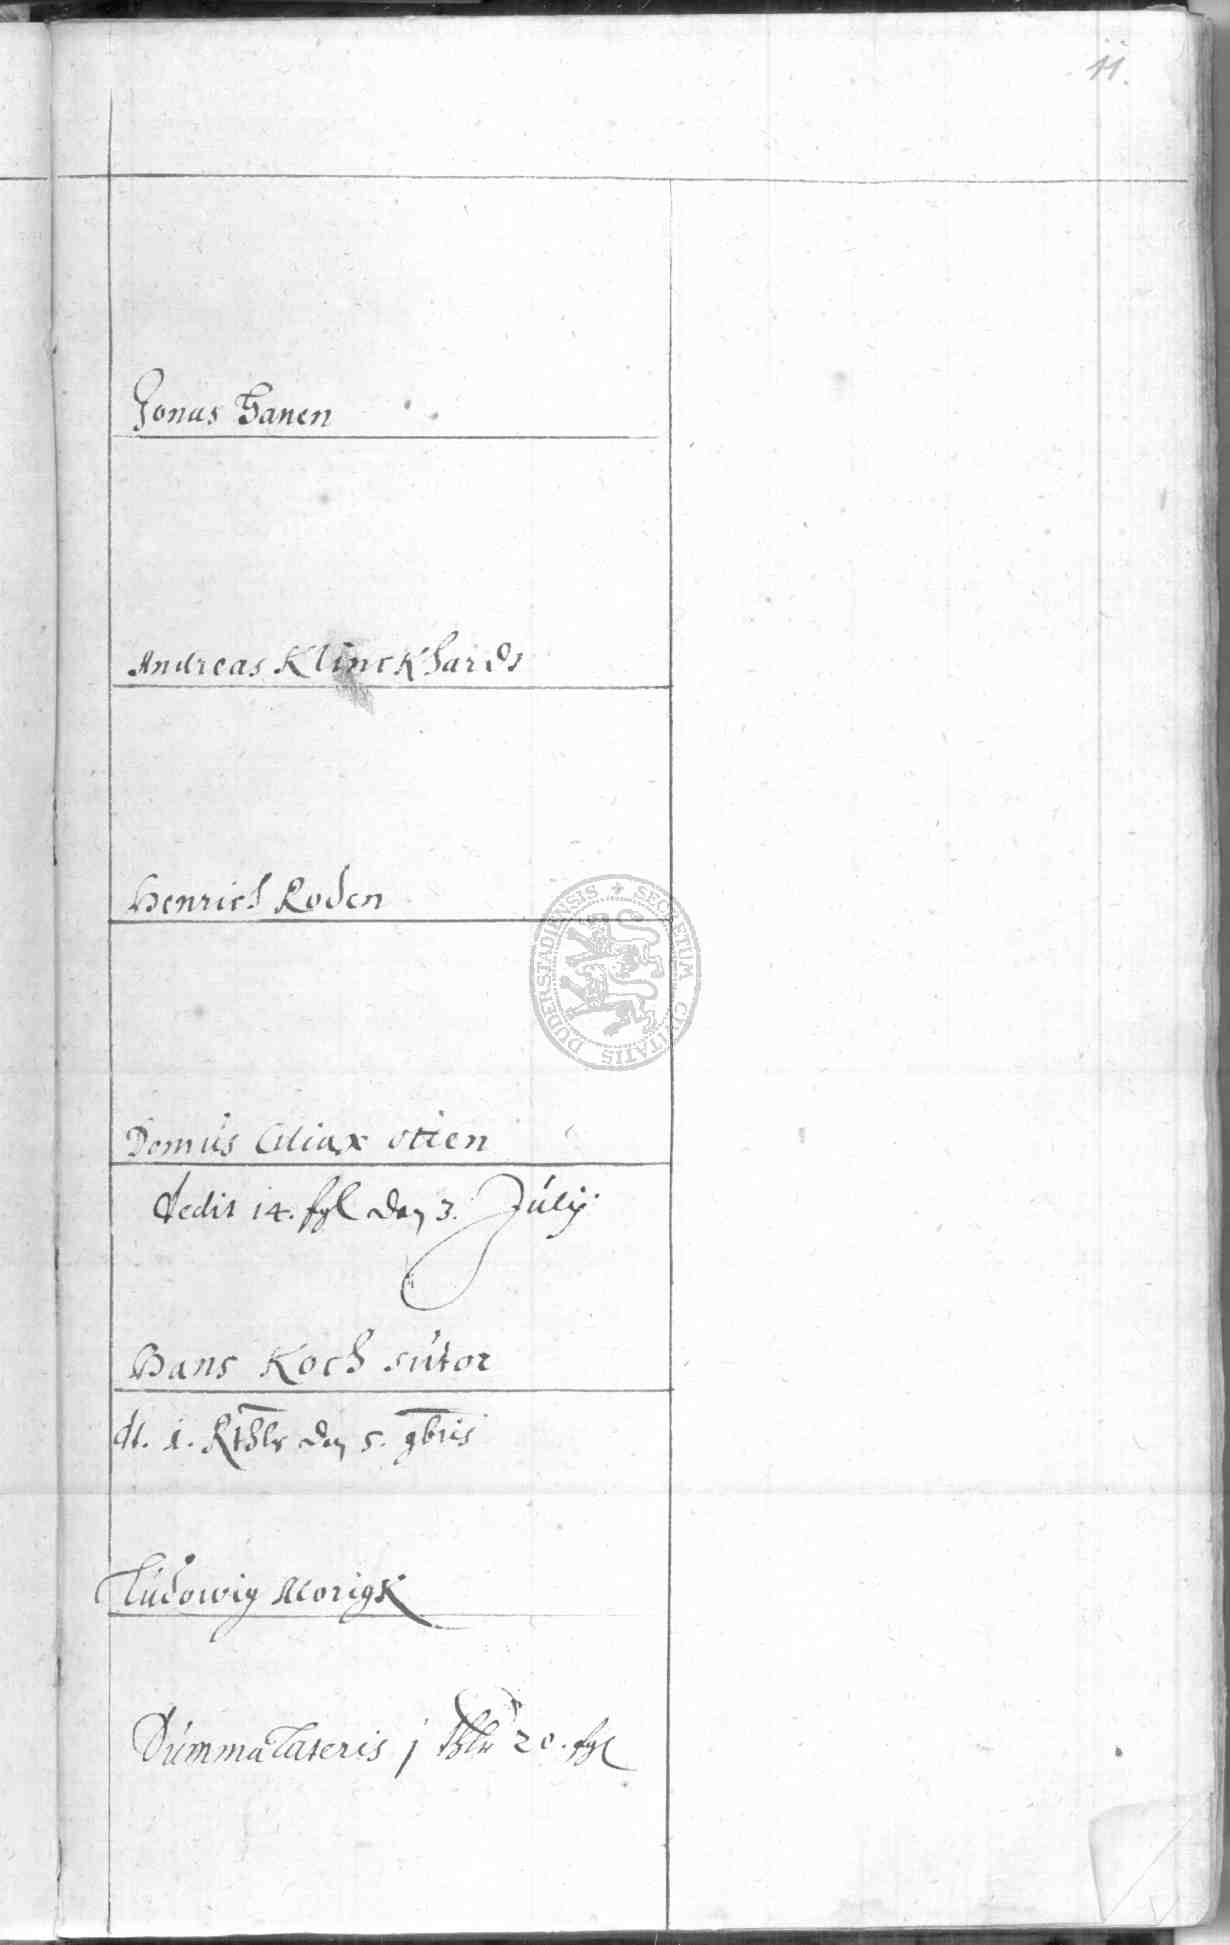 11.
Jonas Hanen
Andreas Klinckhards
Henrich Roden
Domus Ciliax otten
dedit 14. sgl den 3. Julij
Hans Koch sutor
dt. 1. Rthlr den 5. 9bris
Ludowig Morigk
Summa Lateris j thlr 20. sgl
SECRETUM CIVITATIS DUDERSTADIENSIS